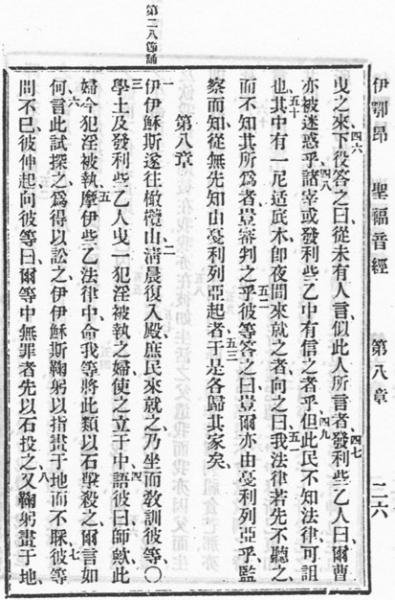 伊鄂昂 聖福音經 第八章 二六
四六 四七
曳之來下役答之曰、從未有人言似此人所言者、發利些乙人曰、爾曹
四八 四九
亦被迷惑乎、諸宰或發利些乙中有信之者乎、但此民不知法律可詛
五十 五一
也、其中有一尼适底木卽夜間來就之者、向之曰、我法律若先不聽之
五二
而不知其所爲者、豈審判之乎、彼等答之曰、豈爾亦由戞利列亞乎、監
五三
察而知從無先知由戞利列亞起者、于是各歸其家矣、
第八章
第二八節誦
一 二
伊伊穌斯遂往橄欖山、淸晨復入殿、庶民來就之、乃坐而敎訓彼等、〇
三 四
學士及發利些乙人曳一犯淫被執之婦、使之立于中、語彼曰、師歟、此
五
婦今犯淫被執、摩伊些乙法律中命我等將此類以石擊殺之、爾言如
六 七
何、言此試探之、爲得以訟之、伊伊穌斯鞠躬以指畫于地、而不睬、彼等
問不已、彼伸起向彼等曰、爾等中無罪者先以石投之、又鞠躬畫于地、